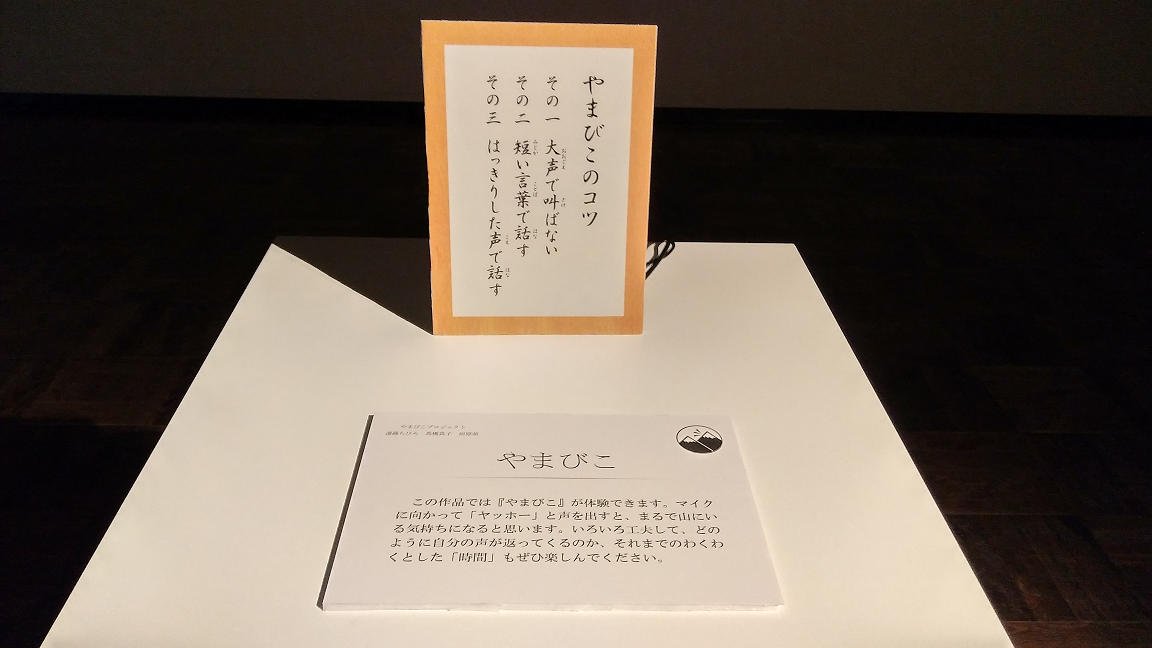 やまびこのコツ
その一 大声で叫ばない
その二 短い言葉で話す
その三 はっきりした声で話す
やまびこプロジェクト
やまびこ
この作品では『やまびこ』が体験できます。マイク
に向かって「ヤッホー」と声を出すと、まるで山にい
る気持ちになると思います。いろいろ工夫して、どの
ように自分の声が返ってくるのか、それまでのわくわ
くとした「時間」もぜひ楽しんでください。